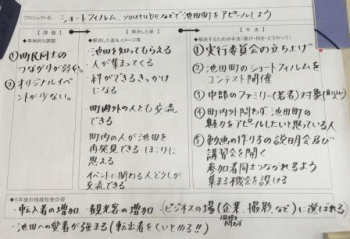 プロジェクト名 ショートフィルム、youtubeなどで池田町をアピールしよう
【課題】
①町民同士のつながりが弱い。
②オリジナルイベントが少ない。
池田を知ってもらえる
人が集まってくる
絆ができるきっかけになる
町内外の人とも交流できる
町内の人が池田を再発見できる ほこりに思える
イベントに関わる人どうしが交流できる
【方法】
①実行委員会の立ち上げ
②池田町のショートフィルムをコンテスト開催
③中部のファミリー(若者)対象
④町内外問わず 池田町の魅力をアピールしたいと思っている人
⑤動画の作り方の説明会及び講習会を開く
参加者同士つながれるよう
集まる機会を設ける
・転入者の増加 ・観光客の増加 ・ビジネスの場(企業、撮影など)に選ばれる
・池田への愛着が強まる(転出者をくいとめる!!)